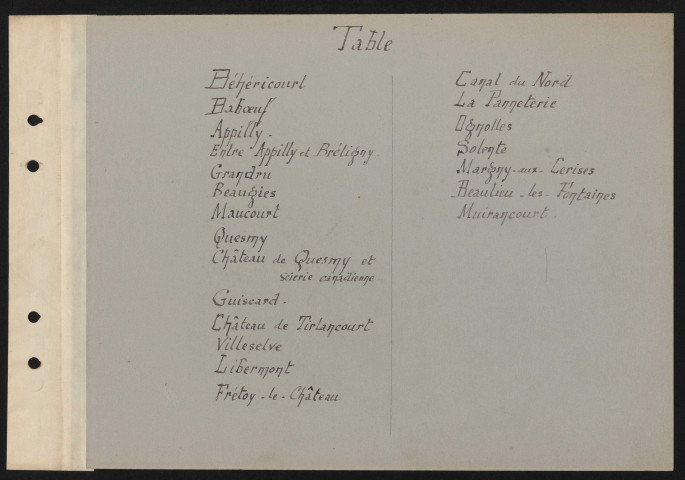 Table
Béhéricourt
Babœuf
Appilly -
Entre Appilly et Brétigny
Grandru
Beaugies
Maucourt
Quesmy
Château de Quesmy et
scierie canadienne
Guiscard -
Château de Tirlancourt
Villeselve
Libermont
Frétoy - le - Château
Canal du Nord
La Panneterie
Ognolles
Solente
Margny - aux - Cerises
Beaulieu - les - Fontaines
Muirancourt -